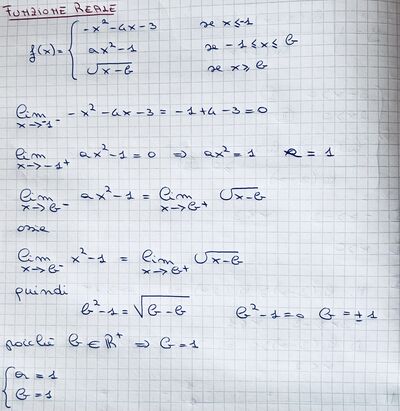 FUNZIONE REALE
f(x) = { -x² - 4x - 3 se x ≤ -1
ax² - 1 se -1 ≤ x ≤ b
√x-b se x ≥ b
lim x→-1⁻ -x² - 4x - 3 = -1 + 4 - 3 = 0
lim x→-1⁺ ax² - 1 = 0 ⇒ ax² = 1 a = 1
lim x→b⁻ ax² - 1 = lim x→b⁺ √x-b
ossia
lim x→b⁻ x² - 1 = lim x→b⁺ √x-b
quindi
b² - 1 = √b-b b² - 1 = 0 b = ±1
poiché b ∈ R⁺ ⇒ b = 1
{ a = 1
b = 1